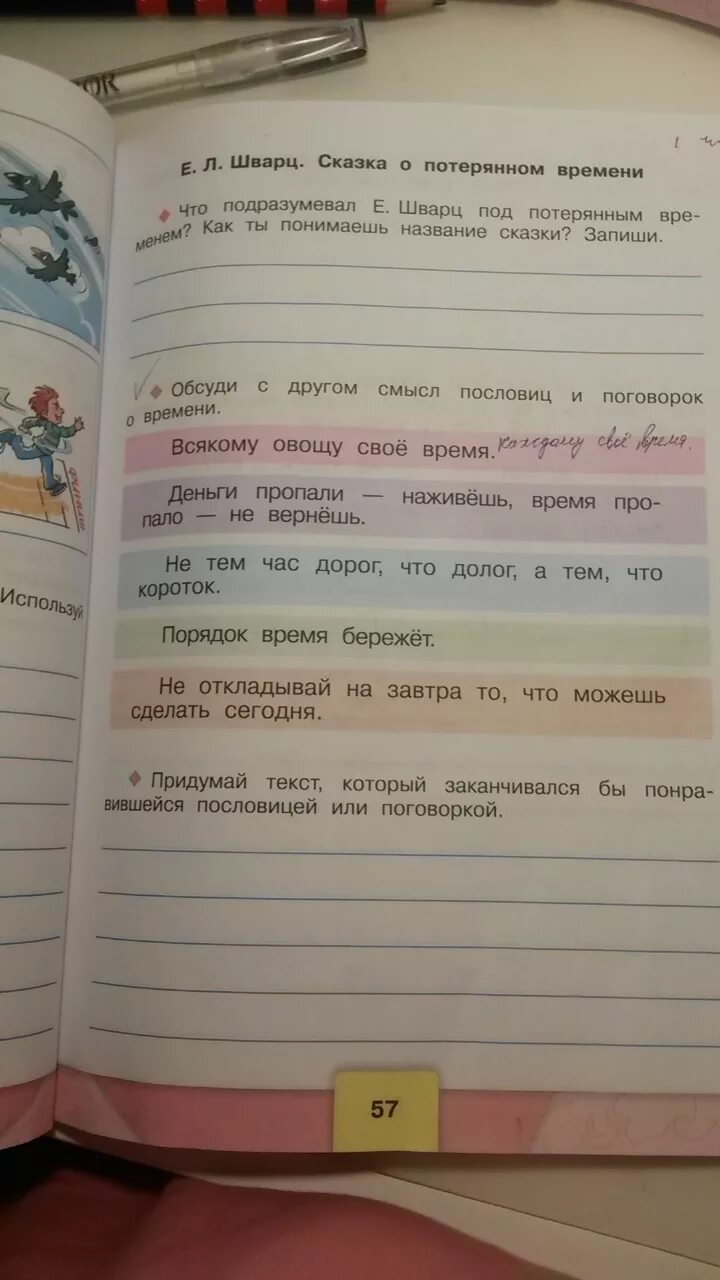 OR
Е. Л. Шварц. Сказка о потерянном времени
Что подразумевал Е. Шварц под потерянным вре-
менем? Как ты понимаешь название сказки? Запиши.
Обсуди с другом смысл пословиц и поговорок
о времени.
Всякому овощу своё время. каждому своё время.
Деньги пропали — наживёшь, время про-
пало — не вернёшь.
Не тем час дорог, что долог, а тем, что
короток.
Порядок время бережёт.
Не откладывай на завтра то, что можешь
сделать сегодня.
Придумай текст, который заканчивался бы понра-
вившейся пословицей или поговоркой.
57
финиш
Используй